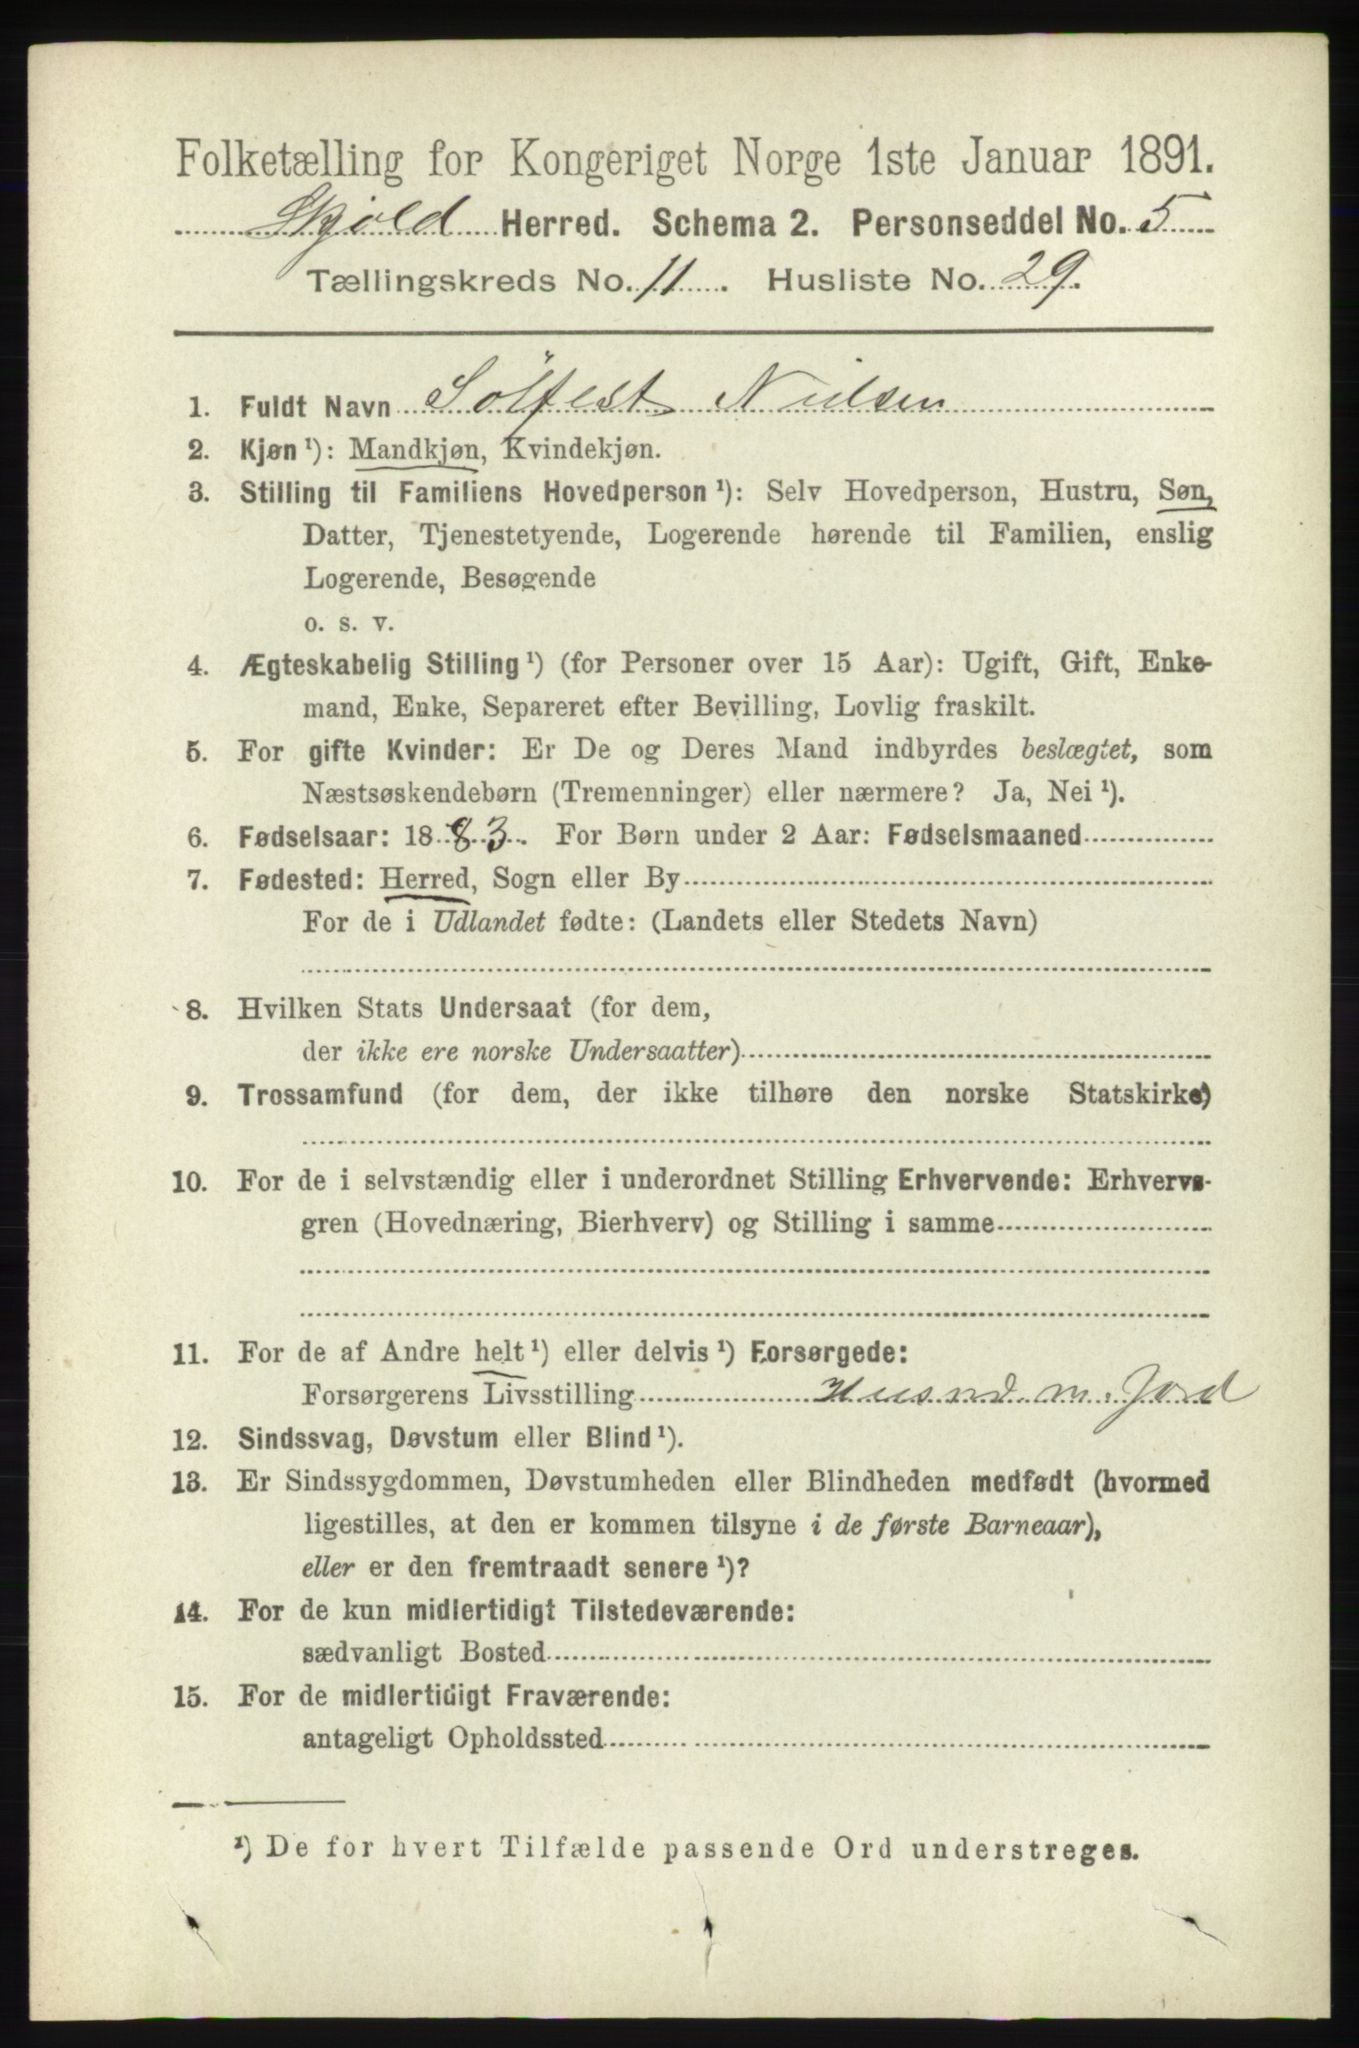 Folketælling for Kongeriget Norge 1ste Januar 1891.
Skjold Herred. Schema 2. Personseddel No. 5
Tællingskreds No. 11. Husliste No. 29.
1. Fuldt Navn Sölfest Nielsen
2. Kjøn¹): Mandkjøn, Kvindekjøn.
3. Stilling til Familiens Hovedperson¹): Selv Hovedperson, Hustru, Søn,
Datter, Tjenestetyende, Logerende hørende til Familien, enslig
Logerende, Besøgende
o. s. v.
4. Ægteskabelig Stilling¹) (for Personer over 15 Aar): Ugift, Gift, Enke-
mand, Enke, Separeret efter Bevilling, Lovlig fraskilt.
5. For gifte Kvinder: Er De og Deres Mand indbyrdes beslægtet, som
Næstsøskendebørn (Tremenninger) eller nærmere? Ja, Nei¹).
6. Fødselsaar: 1883. For Børn under 2 Aar: Fødselsmaaned
7. Fødested: Herred, Sogn eller By
For de i Udlandet fødte: (Landets eller Stedets Navn)
8. Hvilken Stats Undersaat (for dem,
der ikke ere norske Undersaatter)
9. Trossamfund (for dem, der ikke tilhøre den norske Statskirke)
10. For de i selvstændig eller i underordnet Stilling Erhvervende: Erhvervs-
gren (Hovednæring, Bierhverv) og Stilling i samme
11. For de af Andre helt¹) eller delvis¹) Forsørgede:
Forsørgerens Livsstilling Husmd. m. Jord
12. Sindssvag, Døvstum eller Blind¹).
13. Er Sindssygdommen, Døvstumheden eller Blindheden medfødt (hvormed
ligestilles, at den er kommen tilsyne i de første Barneaar),
eller er den fremtraadt senere¹)?
14. For de kun midlertidigt Tilstedeværende:
sædvanligt Bosted
15. For de midlertidigt Fraværende:
antageligt Opholdssted
¹) De for hvert Tilfælde passende Ord understreges.